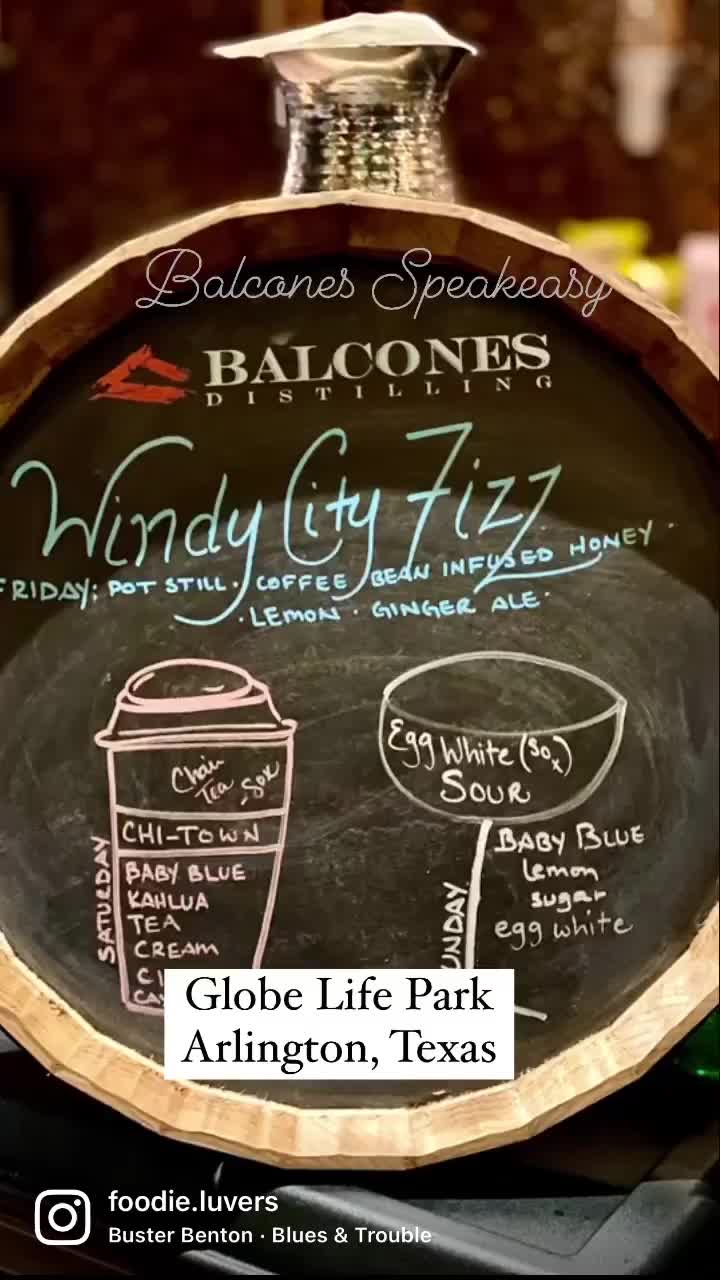 Balcones Speakeasy
BALCONES
DISTILLING
Windy City Fizz
FRIDAY: POT STILL · COFFEE BEAN INFUSED HONEY ·
· LEMON · GINGER ALE ·
Chair
Tea -Sox
CHI-TOWN
SATURDAY
BABY BLUE
KAHLUA
TEA
CREAM
Egg White (Sox)
SOUR
UNDAY
BABY BLUE
lemon
sugar
egg white
Globe Life Park
Arlington, Texas
foodie.luvers
Buster Benton · Blues & Trouble